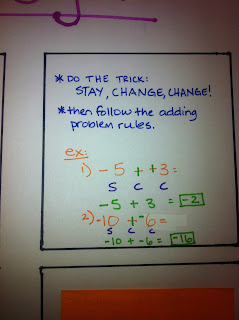 * DO THE TRICK:
STAY, CHANGE, CHANGE!
* then follow the adding
problem rules.
ex:
1) - 5 + +3 =
S C C
-5 + 3 = -2
2) -10 + -6 =
S C C
-10 + -6 = -16